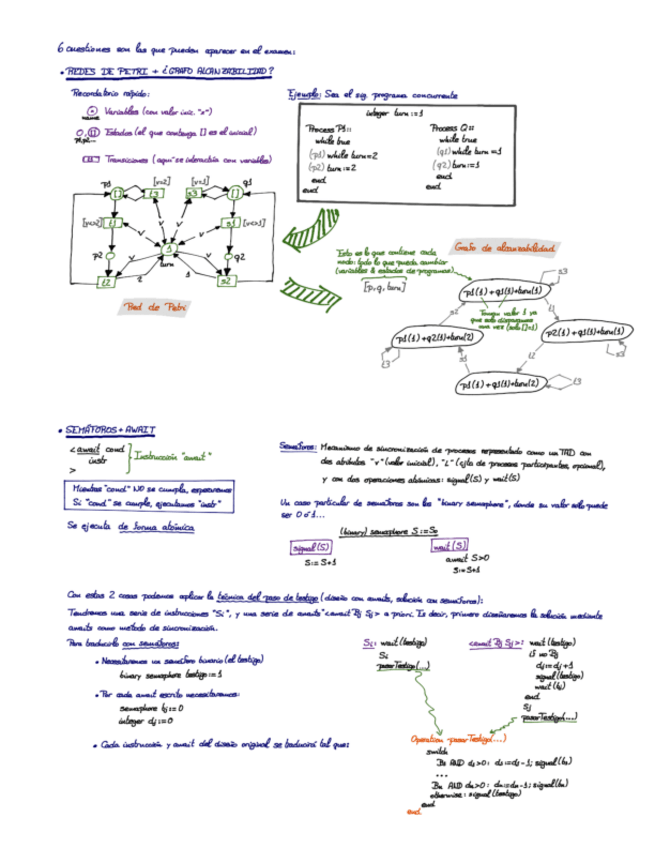 6 cuestiones son las que pueden aparecer en el examen:
• REDES DE PETRI + ¿GRAFO ALCANZABILIDAD?
Recordatorio rápido:
Variables (con valor inic. "x")
nombre
Estados (el que contenga [] es el inicial)
p1,p2...
Transiciones (aquí se interactúa con variables)
Ejemplo: Sea el sig. programa concurrente
integer turn := 1
Process P1::
while true
(p1) while turn=2
(p2) turn:=2
end
end
Process Q::
while true
(q1) while turn=1
(q2) turn:=1
end
end
p1
[v=2]
[v=1]
q1
t3
s3
[v<>2]
t1
s1
[v<>1]
v
v
v
v
p2
v
1
v
q2
turn
t2
2
1
s2
Red de Petri
Esto es lo que contiene cada
nodo: todo lo que pueda cambiar
(variables & estados de programas)
[p,q,turn]
Grafo de alcanzabilidad
s3
p1(1)+q1(1)+turn(1)
Tengan valor 1 ya
que solo disparamos
una vez (solo []=1)
s2
t1
p1(1)+q2(1)+turn(2)
p2(1)+q1(1)+turn(1)
t3
s1
t2
s3
p1(1)+q1(1)+turn(2)
t3
• SEMÁFOROS + AWAIT
<await cond
instr
>
Instrucción "await"
Mientras "cond" NO se cumpla, esperamos
Si "cond" se cumple, ejecutamos "instr"
Se ejecuta de forma atómica
Semáforos: Mecanismo de sincronización de procesos representado como un TAD con
dos atributos "v" (valor inicial), "L" (cjto de procesos participantes, opcional),
y con dos operaciones atómicas: signal(S) y wait(S)
Un caso particular de semáforos son los "binary semaphore", donde su valor solo puede
ser 0 ó 1...
(binary) semaphore S := S₀
signal(S)
S:= S+1
wait(S)
await S>0
S:= S+1
Con estas 2 cosas podemos aplicar la técnica del paso de testigo (diseño con awaits, solución con semáforos):
Tendremos una serie de instrucciones "Si", y una serie de awaits "<await Bj Sj> a priori. Es decir, primero diseñaremos la solución mediante
awaits como método de sincronización.
Para traducirlo con semáforos:
• Necesitaremos un semáforo binario (el testigo)
binary semaphore testigo := 1
• Por cada await escrito necesitaremos:
semaphore bj := 0
integer dj := 0
• Cada instrucción y await del diseño original se traducirá tal que:
Si: wait(testigo)
Si
pasarTestigo(...)
<await Bj Sj>: wait(testigo)
if no Bj
dj:= dj+1
signal(testigo)
wait(bj)
end
Sj
pasarTestigo(...)
Operation pasarTestigo(...)
switch
B1 AND d1>0: d1:=d1-1; signal(b1)
...
Bn AND dn>0: dn:=dn-1; signal(bn)
otherwise: signal(testigo)
end
end